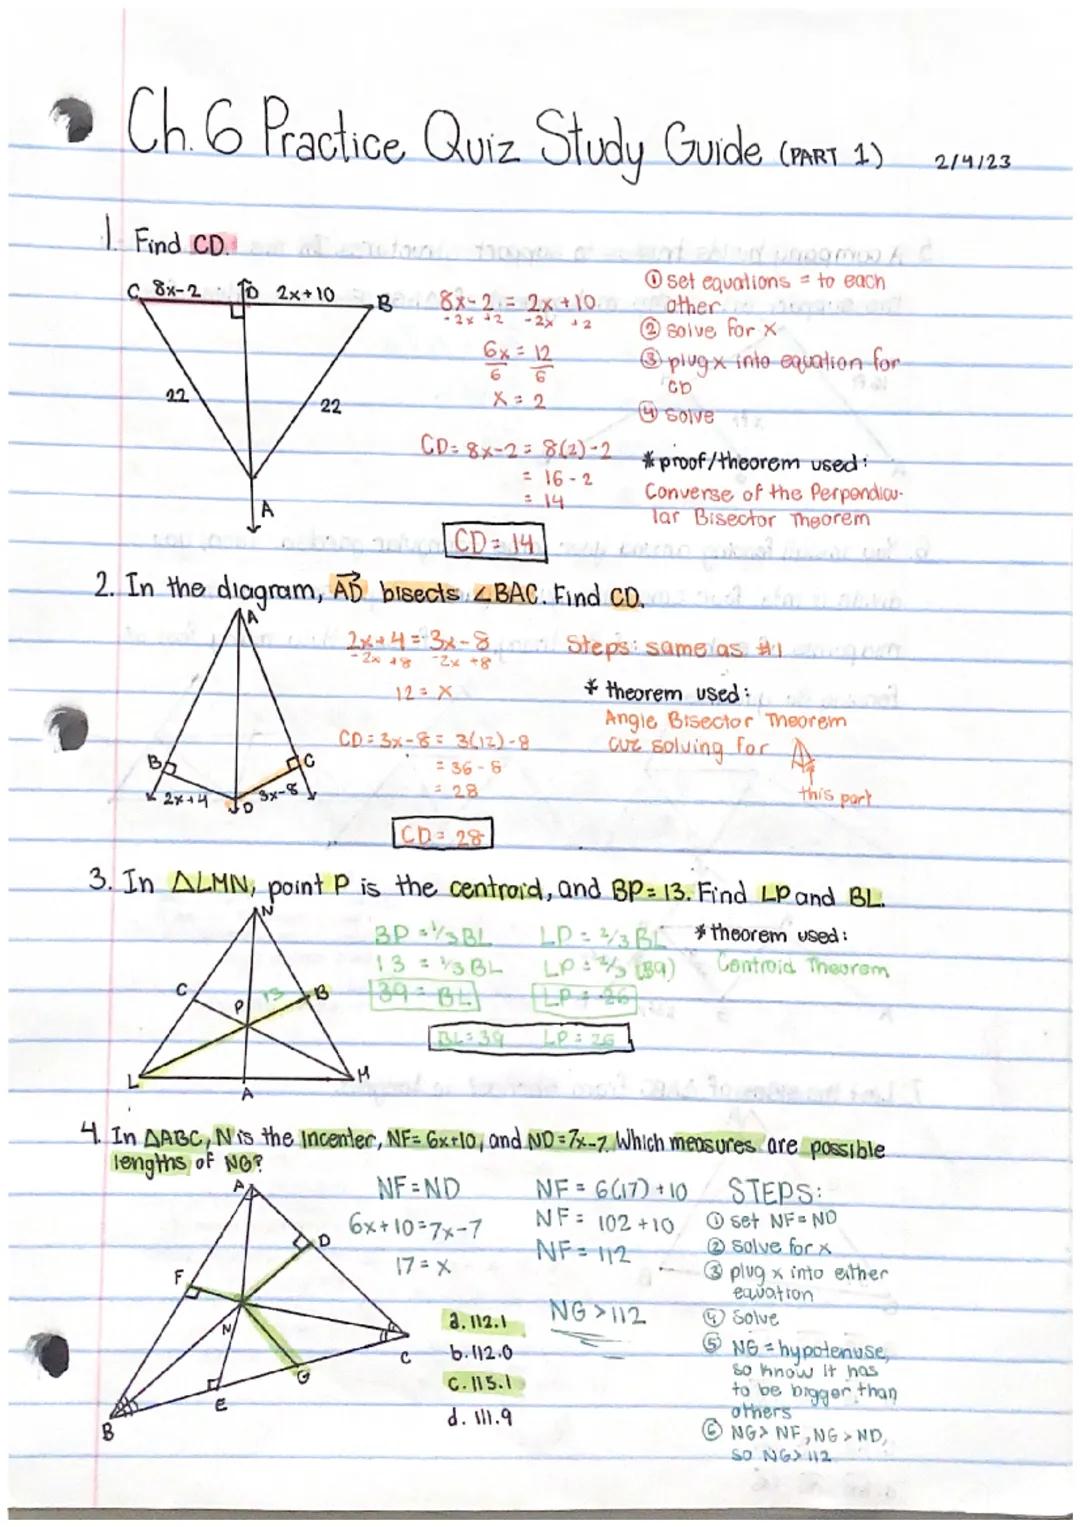 Ch. 6 Practice Quiz Study Guide (PART 1) 2/4/23
1. Find CD.
C 8x-2 D 2x+10 B
22
22
A
8x-2 = 2x+10
-2x +2 -2x +2
6x = 12
6 6
x = 2
CD = 8x-2 = 8(2)-2
= 16-2
= 14
CD = 14
① set equations = to each
other
② solve for x
③ plug x into equation for
CD
④ solve
* proof/theorem used:
Converse of the Perpendicu-
lar Bisector Theorem
2. In the diagram, AD bisects ∠BAC. Find CD.
A
B
C
2x+4 D 3x-8
2x+4 = 3x-8
-2x +8 -2x +8
12 = x
CD = 3x-8 = 3(12)-8
= 36-8
= 28
CD = 28
Steps: same as #1
* theorem used:
Angle Bisector Theorem
cuz solving for
this part
3. In △LMN, point P is the centroid, and BP=13. Find LP and BL.
N
C P 13 B
L A M
BP = 1/3 BL
13 = 1/3 BL
39 = BL
LP = 2/3 BL
LP = 2/3 (39)
LP = 26
BL = 39 LP = 26
* theorem used:
Centroid Theorem
4. In △ABC, N is the incenter, NF=6x+10, and ND=7x-7. Which measures are possible
lengths of NG?
A
D
F
N
C
G
E
B
NF = ND
6x+10=7x-7
17 = x
NF = 6(17)+10
NF = 102+10
NF = 112
NG > 112
a. 112.1
b. 112.0
c. 115.1
d. 111.9
STEPS:
① set NF=ND
② solve for x
③ plug x into either
equation
④ solve
⑤ NG = hypotenuse,
so know it has
to be bigger than
others
⑥ NG > NF, NG > ND,
so NG > 112